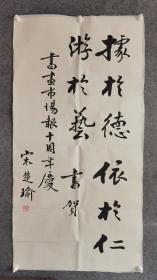 據於德依於仁
游於藝 書賀
書画市場報十周年慶
宋楚瑜